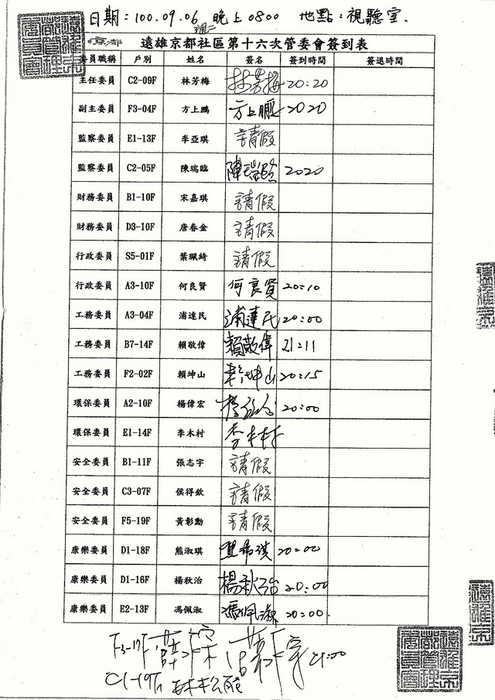 日期：100.09.06 晚上0800 地點：視聽室.
遠雄京都社區第十六次管委會簽到表
委員職稱 戶別 姓名 簽名 簽到時間 簽退時間
主任委員 C2-09F 林芳梅 林芳梅 20:20
副主委員 F3-04F 方上鵬 方上鵬 2020
監察委員 E1-13F 李亞琪 請假
監察委員 C2-05F 陳瑞臨 陳瑞臨 2020
財務委員 B1-10F 宋嘉琪 請假
財務委員 D3-10F 唐春金 請假
行政委員 S5-01F 葉珮綺 請假
行政委員 A3-10F 何良賢 何良賢 20:10
工務委員 A3-04F 浦達民 浦達民 20:00
工務委員 B7-14F 賴敬偉 賴敬偉 21:11
工務委員 F2-02F 賴坤山 賴坤山 20:15
環保委員 A2-10F 楊偉宏 20:00
環保委員 E1-14F 李木村 李木村
安全委員 B1-11F 張志宇 請假
安全委員 C3-07F 侯得欽 請假
安全委員 F5-19F 黃彰勳 請假
康樂委員 D1-18F 熊淑琪 20:00
康樂委員 D1-16F 楊秋治 楊秋治 20:00
康樂委員 E2-13F 馮佩淑 馮佩淑 20:00
F3-17F 21:00
C1-19F